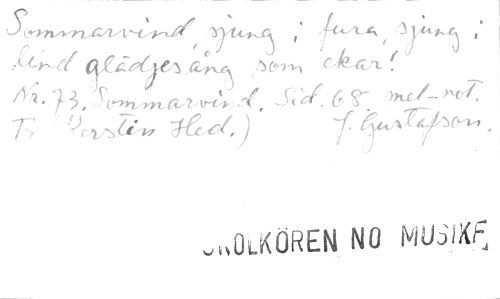 Sommarvind, sjung i fura, sjung i
lind glädjesång som ekar!
Nr. 73. Sommarvind. Sid. 68 mel-not.
Kerstin Hed.) J. Gustafson.
SKOLKÖREN NO MUSIKF